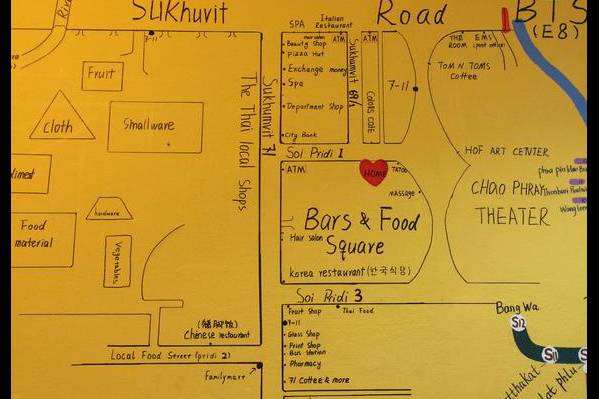 Sukhuvit Road BTS
(E8)
SPA
Italian
Restaurant
7-11
Hair salon
ATM
ATM
Beauty Shop
Pizza Hut
Exchange money
Spa
Department Shop
City Bank
Sukhumvit 69/1
Colors cafe
7-11
THE EMS
ROOM (post office)
TOM N TOMS
Coffee
Fruit
cloth
Smallware
Sukhumvit 71
The Thai local Shops
Soi Pridi 1
ATM
HOME
TATOO
MASSAGE
HOF ART CENTER
CHAO PHRAY
THEATER
hardware
Food
material
Vegetables
Bars & Food
Square
Hair salon
Korea restaurant (한국식당)
Soi Pridi 3
Fruit Shop
Thai Food
7-11
Glass Shop
Print Shop
Bus Station
Pharmacy
71 Coffee & more
Chinese restaurant
Local Food Street (pridi 2)
Familymart
Bang Wa
S12
S11
lat phlu